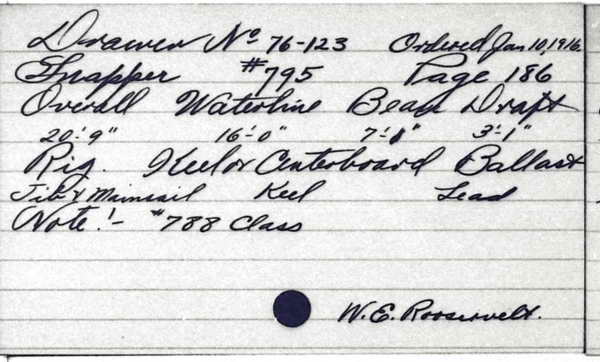 Drawer No 76-123 Ordered Jan 10, 1916.
Snapper #795 Page 186
Overall Waterline Beam Draft
20'-9" 16'-0" 7'-1" 3'-1"
Rig. Keel or Centerboard Ballast
Jib & Mainsail Keel Lead
Note!- #788 Class
W.E. Roosevelt.